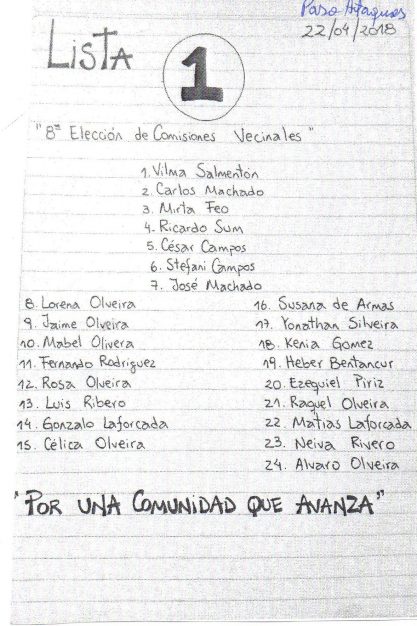 Paso Ataques
22/04/2018
LISTA 1
"8ª Elección de Comisiones Vecinales"
1. Vilma Salmentón
2. Carlos Machado
3. Mirta Feo
4. Ricardo Sum
5. César Campos
6. Stefani Campos
7. José Machado
8. Lorena Olveira
9. Jaime Olveira
10. Mabel Olivera
11. Fernando Rodríguez
12. Rosa Olveira
13. Luis Ribero
14. Gonzalo Laforcada
15. Célica Olveira
16. Susana de Armas
17. Yonathan Silveira
18. Kenia Gomez
19. Heber Bentancur
20. Ezequiel Piriz
21. Raquel Olveira
22. Matías Laforcada
23. Neiva Rivero
24. Alvaro Olveira
"POR UNA COMUNIDAD QUE AVANZA"